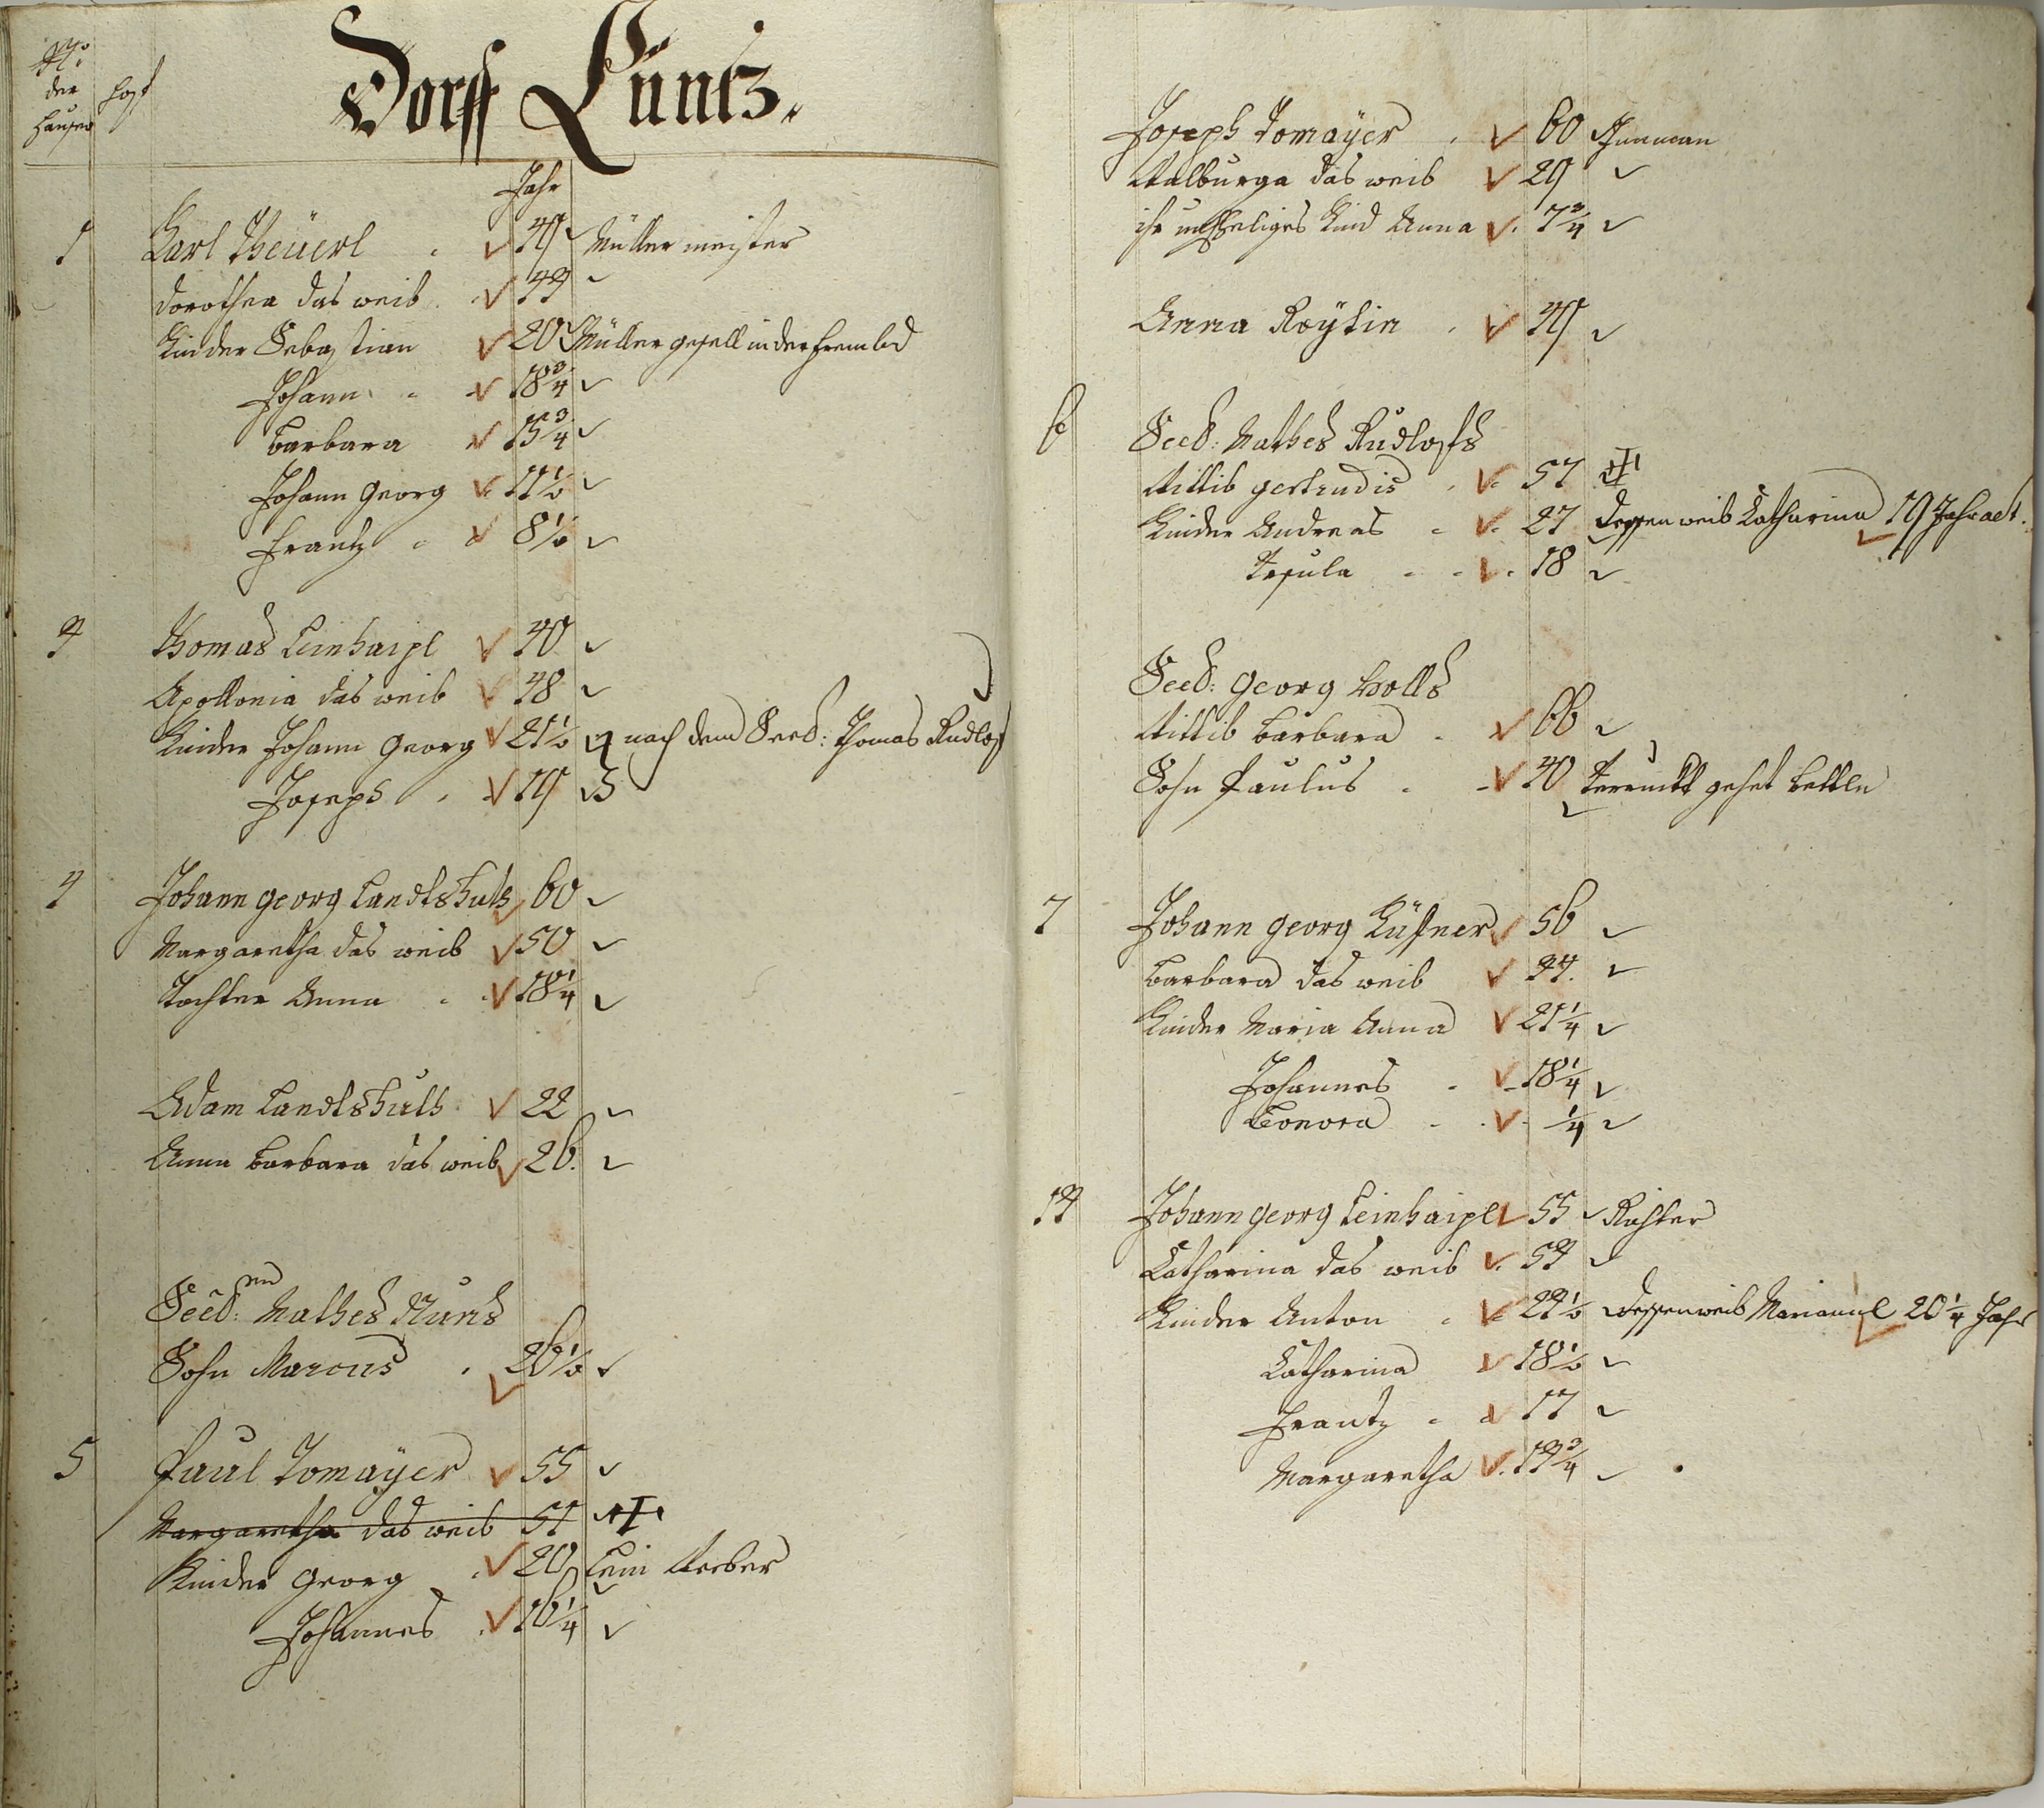 No
der
Häuser
Hoff
Dorff Luntz.
Jahr
1 Carl Theüerl 45 Müller meister
Dorothea das weib 44
Kinder Sebastian 20 Müller gesell in der frembd
Johann 18 3/4
Barbara 15 3/4
Johann Georg 11 1/2
Frantz 8 1/2
3 Thomas Leinhaipl 40
Apollonia das weib 48
Kinder Johann Georg 21 1/2 nach dem Seel: Thomas Rudlof
Joseph 15
4 Johann Georg Landtshuts 60
Margaretha das weib 50
Tochter Anna 18 1/4
Adam Landtshuts 22
Anna Barbara das weib 26.
Seel: Mathes
Sohn Marcus 26 1/2
5 Paul Tomaÿer 55
Margaretha das weib 51
Kinder Georg 20 Lein Weeber
Johannes 16 1/4
Joseph Tomaÿer 60 Innman
Walburga das weib 29
ihr uneheliges Kind Anna 7 3/4
Anna 45
6 Seel: Mathes Rudlofs
Wittib Gertrudis 57
Kinder Andreas 27 dessen weib Catharina 19 Jahr alt.
Ursula 18
Seel: Georg Holls
Wittib Barbara 66
Sohn Paulus 40 Verruckt gehet bettln
7 Johann Georg Küfner 56
Barbara das weib 44.
Kinder Maria Anna 21 1/4
Johannes 18 1/4
Leonora 1/4
14 Johann Georg Leinhaipl 55 Richter
Catharina das weib 54
Kinder Anton 24 1/2 dessen weib Marianna 20 1/4 Jahr
Catharina 18 1/2
Frantz 17
Margaretha 14 3/4